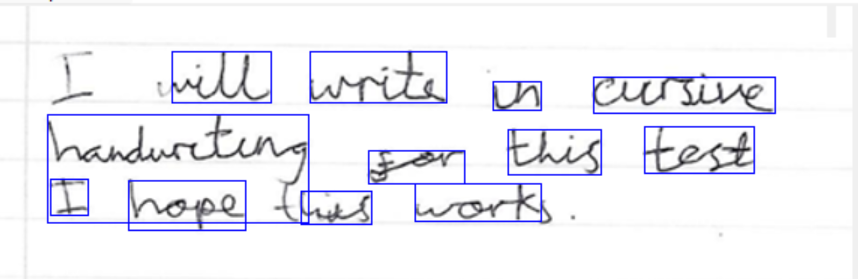 I will write in cursive
handwriting for this test
I hope this works.